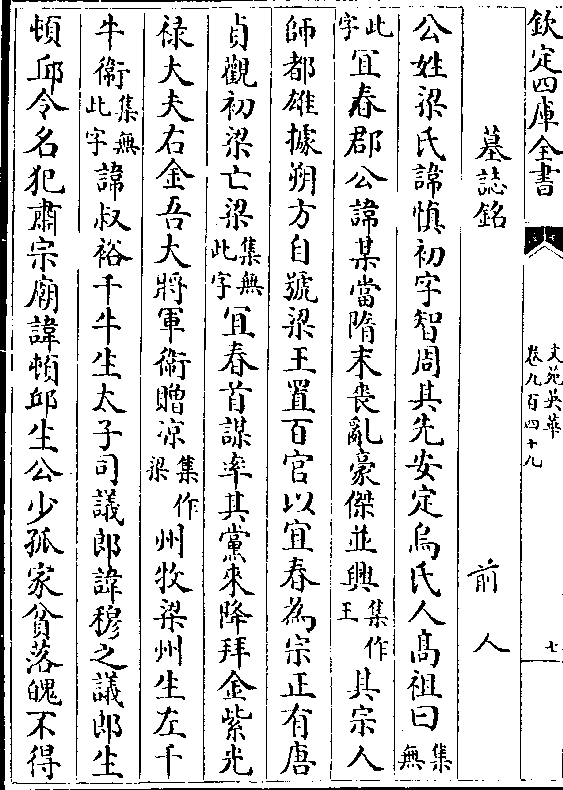 欽定四庫全書
文苑英華
卷九百四十九
七
墓誌銘　前人
公姓梁氏諱慎初字智周其先安定烏氏人髙祖曰集無
此字宜春郡公諱某當隋末喪亂豪傑並興集作王其宗人
師都雄據朔方自號梁王置百官以宜春為宗正有唐
貞觀初梁亡梁集無此字宜春首謀率其黨來降拜金紫光
禄大夫右金吾大將軍衞贈凉集作梁州牧梁州生左千
牛衞集無此字諱叔裕千牛生太子司議郎諱穆之議郎生
頓邱令名犯肅宗廟諱頓邱生公少孤家貧落魄不得